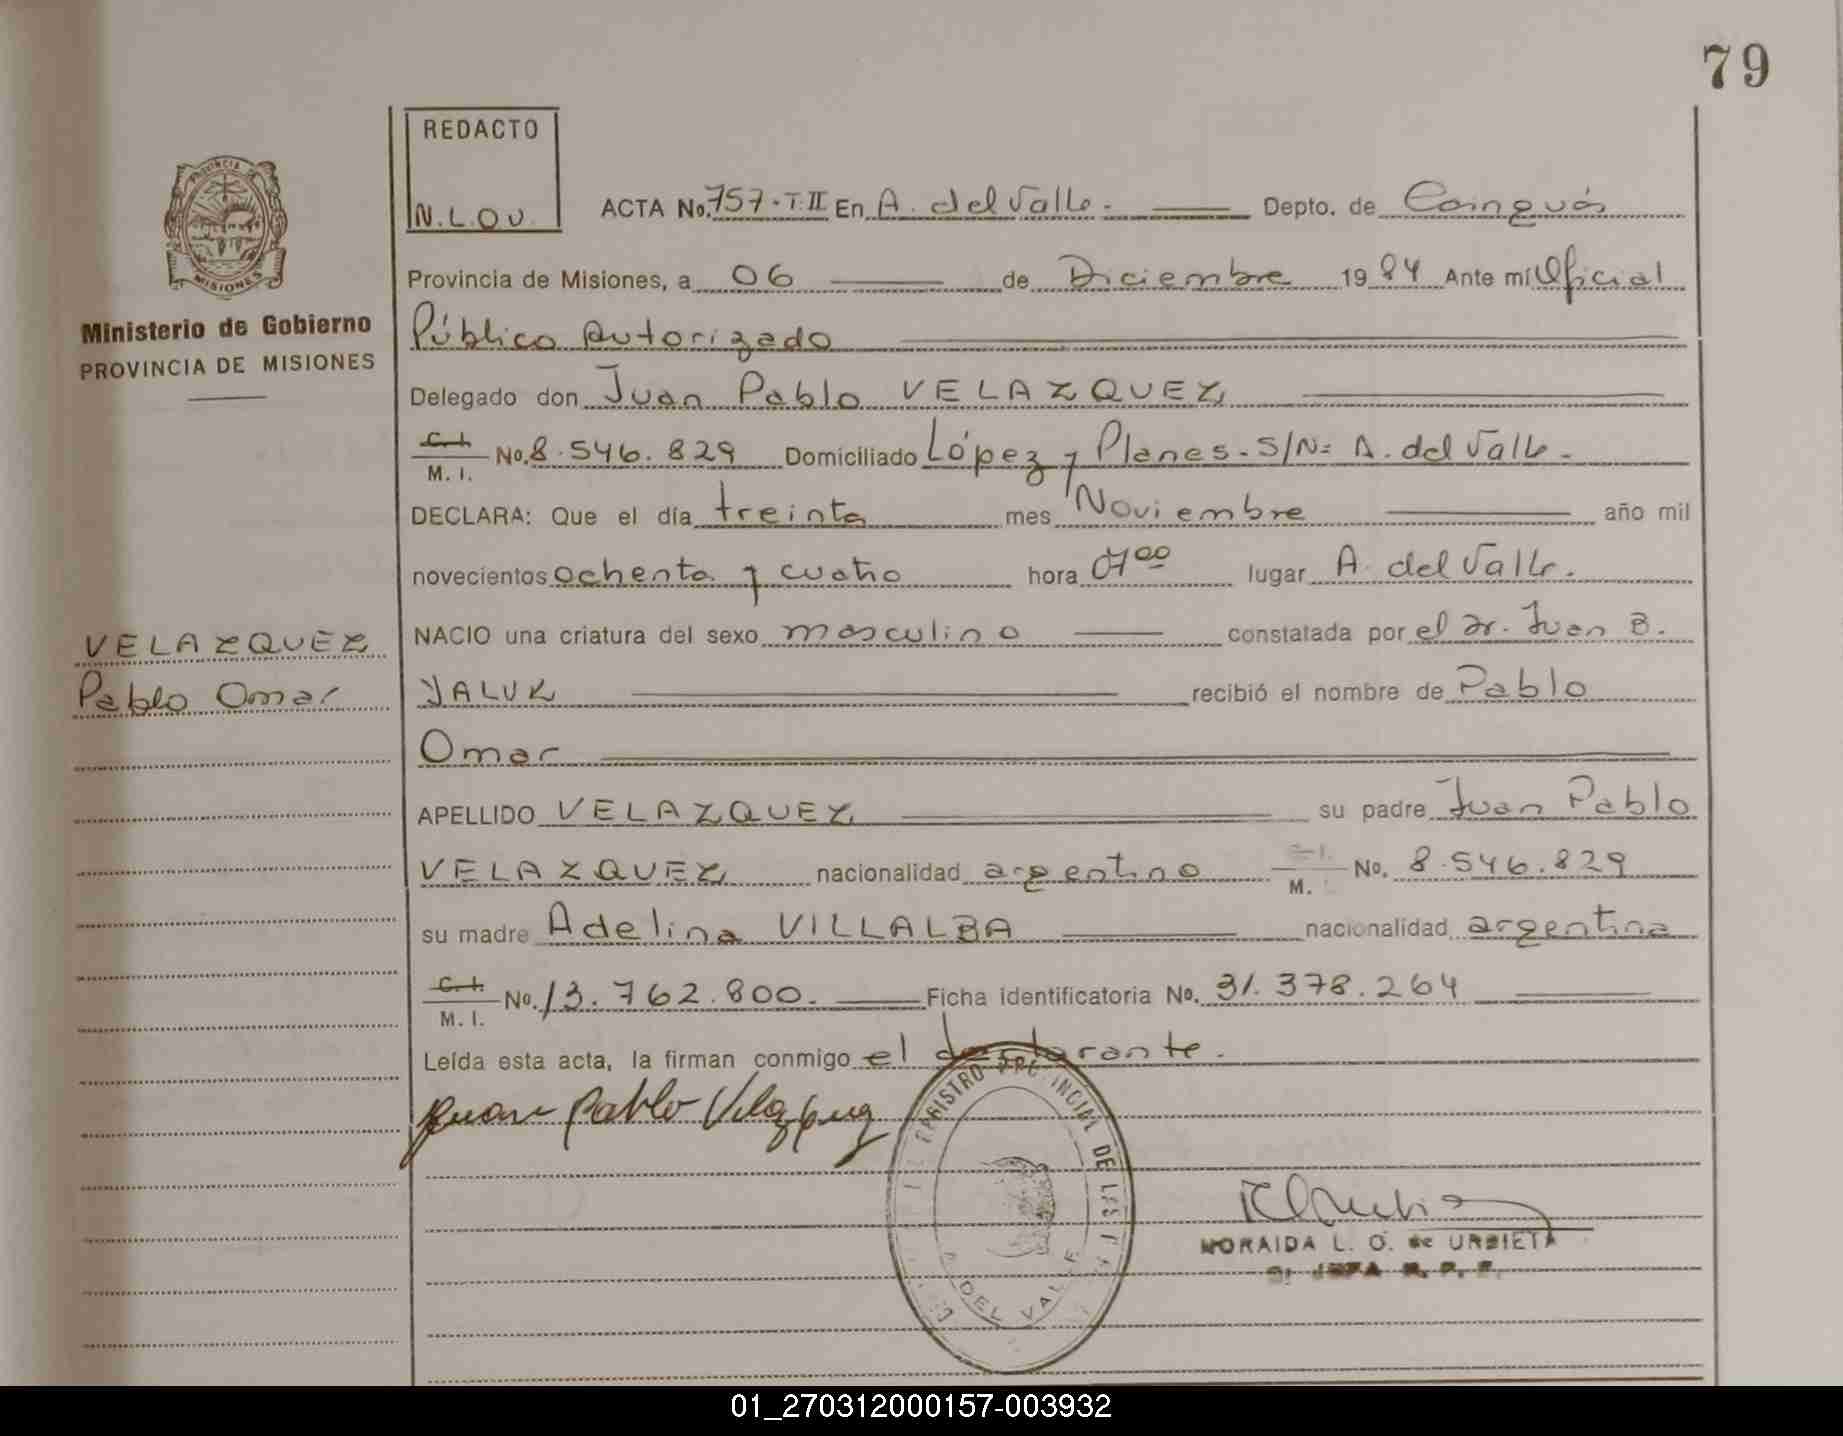 79
REDACTO
N.L.O.U.
ACTA No. 757-T.II En A. del Valle. Depto. de Cainguás
Provincia de Misiones, a 06 de Diciembre 1984 Ante mi Oficial
Público Autorizado
Delegado don Juan Pablo VELAZQUEZ
C.I. M.I. No. 8.546.829 Domiciliado López y Planes. S/Nº A. del Valle.
DECLARA: Que el día treinta mes Noviembre año mil
novecientos ochenta y cuatro hora 07 00 lugar A. del Valle.
NACIO una criatura del sexo masculino constatada por el Dr. Juan B.
YALUK recibió el nombre de Pablo
Omar
APELLIDO VELAZQUEZ su padre Juan Pablo
VELAZQUEZ nacionalidad argentino M. No. 8.546.829
su madre Adelina VILLALBA nacionalidad argentina
C.I. M.I. No. 13.762.800. Ficha identificatoria No. 31.378.264
Leída esta acta, la firman conmigo el declarante.
Juan Pablo Velazquez
PROVINCIA DE
MISIONES
Ministerio de Gobierno
PROVINCIA DE MISIONES
VELAZQUEZ
Pablo Omar
REGISTRO PROVINCIAL DE LAS
A. DEL VALLE
NORAIDA L. O. de URBIETA
JEFA R. P. P.
01_270312000157-003932